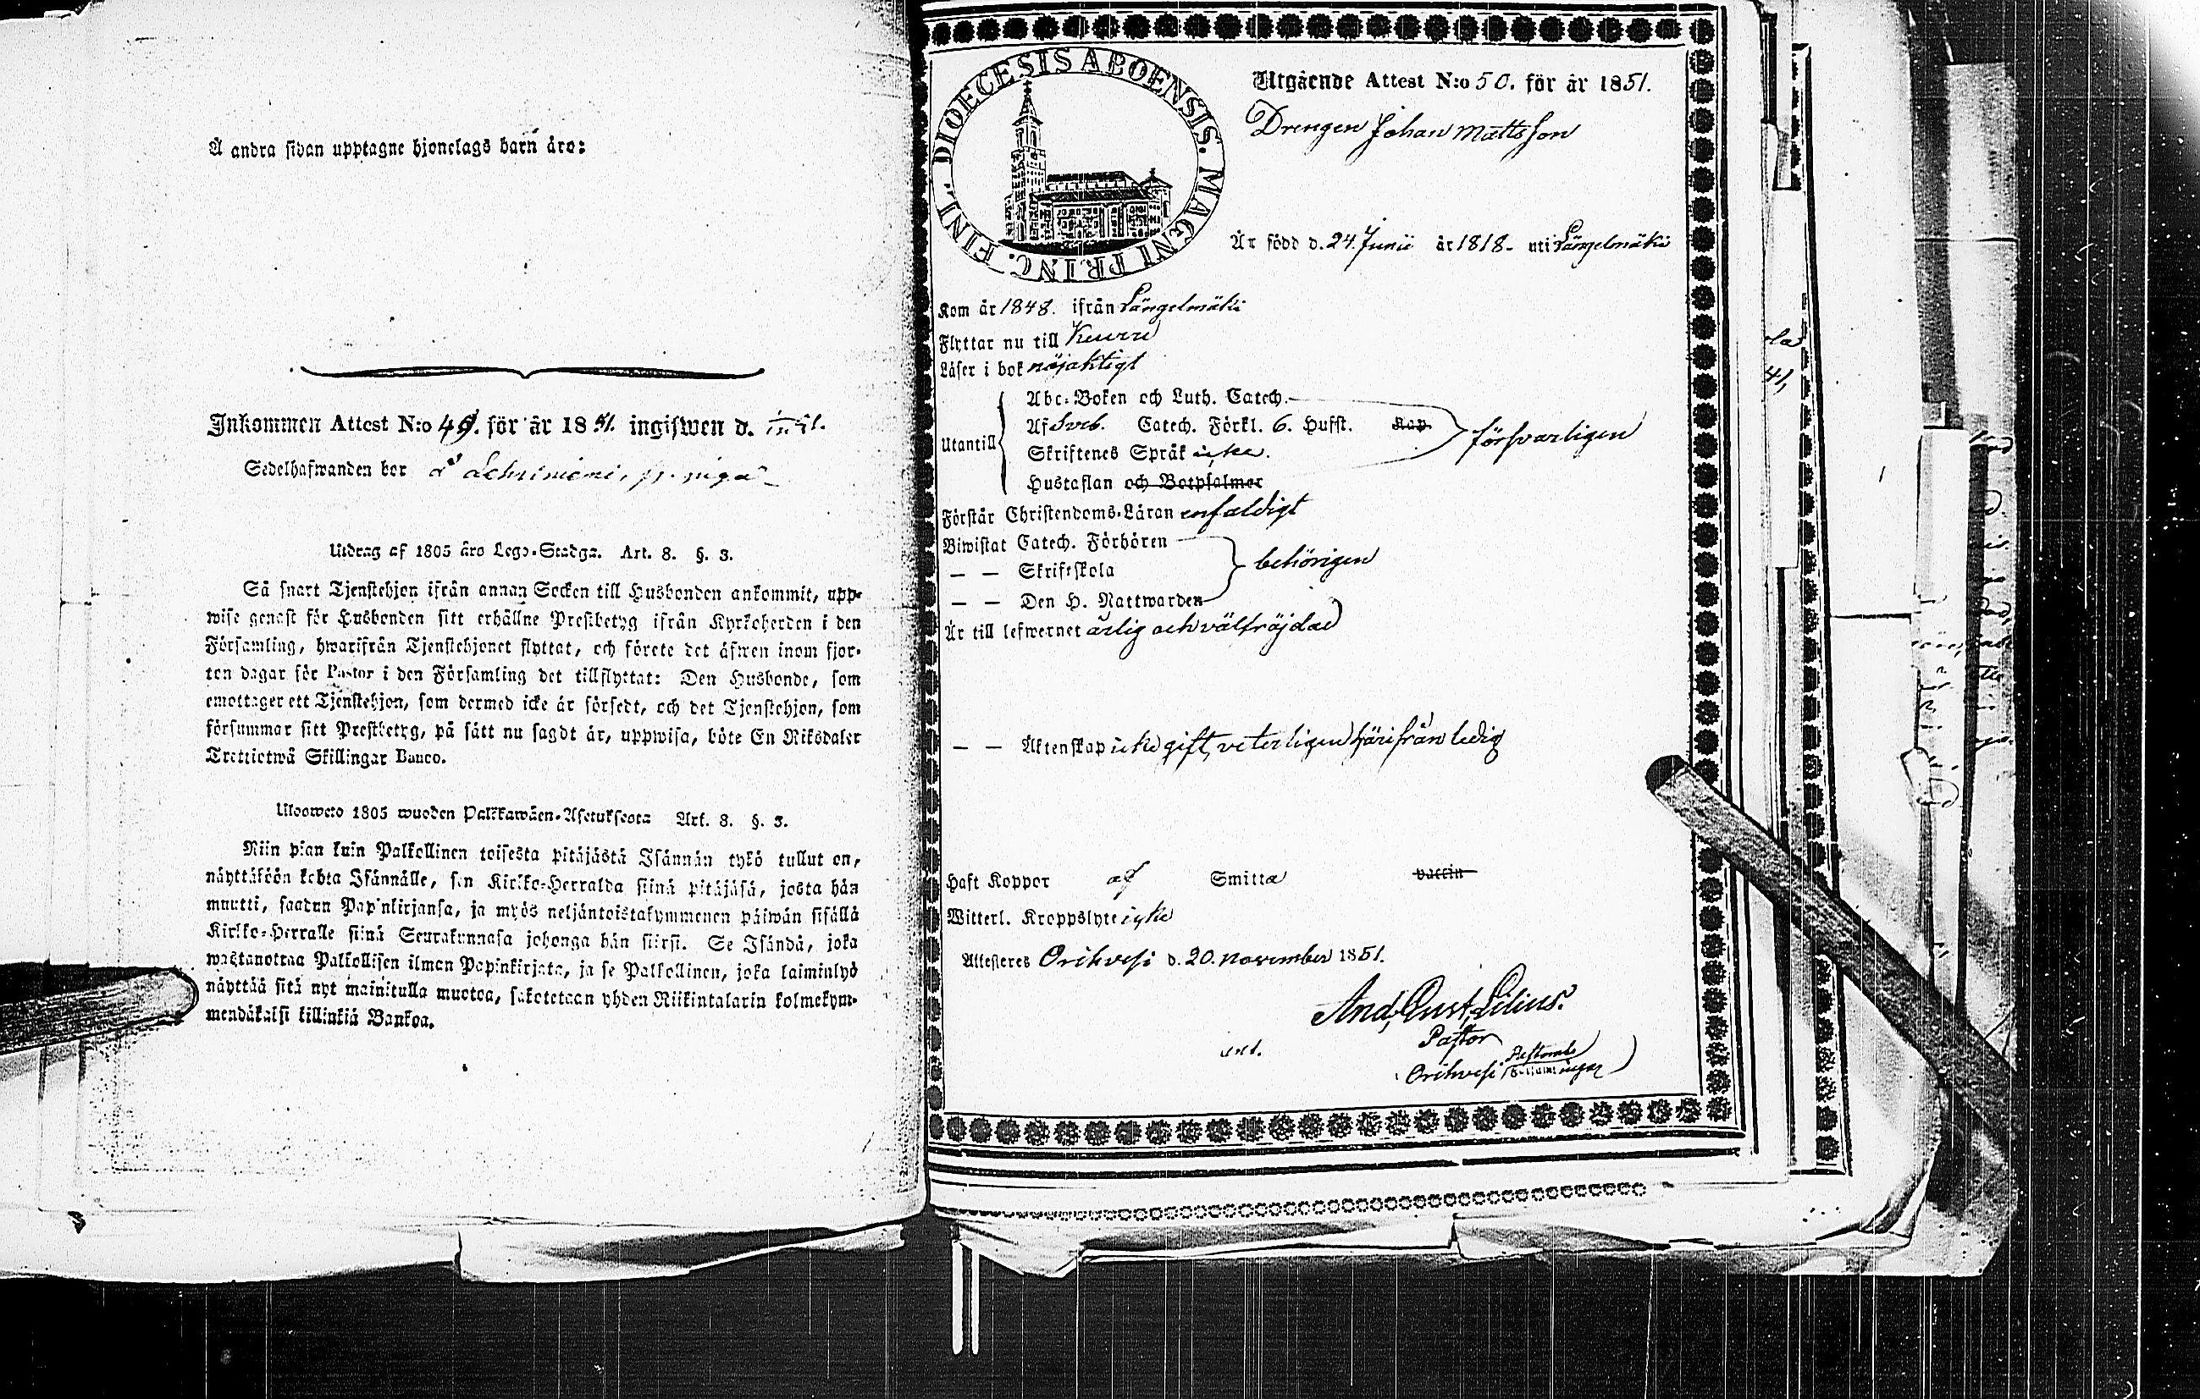 Å andra sidan upptagne hjonelags barn äro:
Inkommen Attest N:o 49. för år 1851. ingifwen d.
Sedelhafwanden bor å
Utdrag af 1805 års Lego-Stadga. Art. 8. §. 3.
Så snart Tjenstehjon ifrån annan Socken till Husbonden ankommit, upp-
wise genast för Husbonden sitt erhållne Prestbetyg ifrån Kyrkoherden i den
Församling, hwarifrån Tjenstehjonet flyttat, och förete det äfwen inom fjor-
ton dagar för Pastor i den Församling det tillflyttat: Den Husbonde, som
emottager ett Tjenstehjon, som dermed icke är försedt, och det Tjenstehjon, som
försummar sitt Prestbetyg, på sätt nu sagdt är, uppwisa, böte En Riksdaler
Trettiotwå Skillingar Banco.
Ulosweto 1805 wuoden Palkkawäen-Asetuksesta Art. 8. §. 3.
Niin pian kuin Palkollinen toisesta pitäjästä Isännän tykö tullut on,
näyttäköön kohta Isännälle, sen Kirkko-Herralda siinä pitäjäsä, josta hän
muutti, saadun Papinkirjansa, ja myös neljäntoistakymmenen päiwän sisällä
Kirkko-Herralle siinä Seurakunnasa johonga hän siirsi. Se Isändä, joka
wastanottaa Palkollisen ilman Papinkirjata, ja se Palkollinen, joka laiminlyö
näyttää sitä nyt mainitulla muotoa, sakotetaan yhden Riikintalarin kolmekym-
mendäkaksi killinkiä Bankoa.
DIOECESIS ABOENSIS. MAGNI PRINC. FINL.
Utgående Attest N:o 50. för år 1851.
Drengen Johan Mattsson
Är född d. 24. Junii år 1818. uti Längelmäki
Kom år 1848. ifrån Längelmäki
Flyttar nu till Keuru
Läser i bok nöjaktigt
Abc-Boken och Luth. Catech.
Utantill Af Sveb. Catech. Förkl. 6. Hufst. Kap. försvarligen
Skriftenes Språk icke.
Hustaflan och Botpsalmer
Förstår Christendoms-Läran enfaldigt
Biwistat Catech. Förhören
— — Skriftskola behörigen
— — Den H. Nattwarden
Är till lefwernet ärlig och välfrejdad
— — Äktenskap icke gift, veterligen härifrån ledig
Haft Koppor af Smitta vaccin
Witterl. Kroppslyte icke
Attesteres Orihvesi d. 20. november 1851.
And. Gust. Lilius.
Pastor
Orihvesi